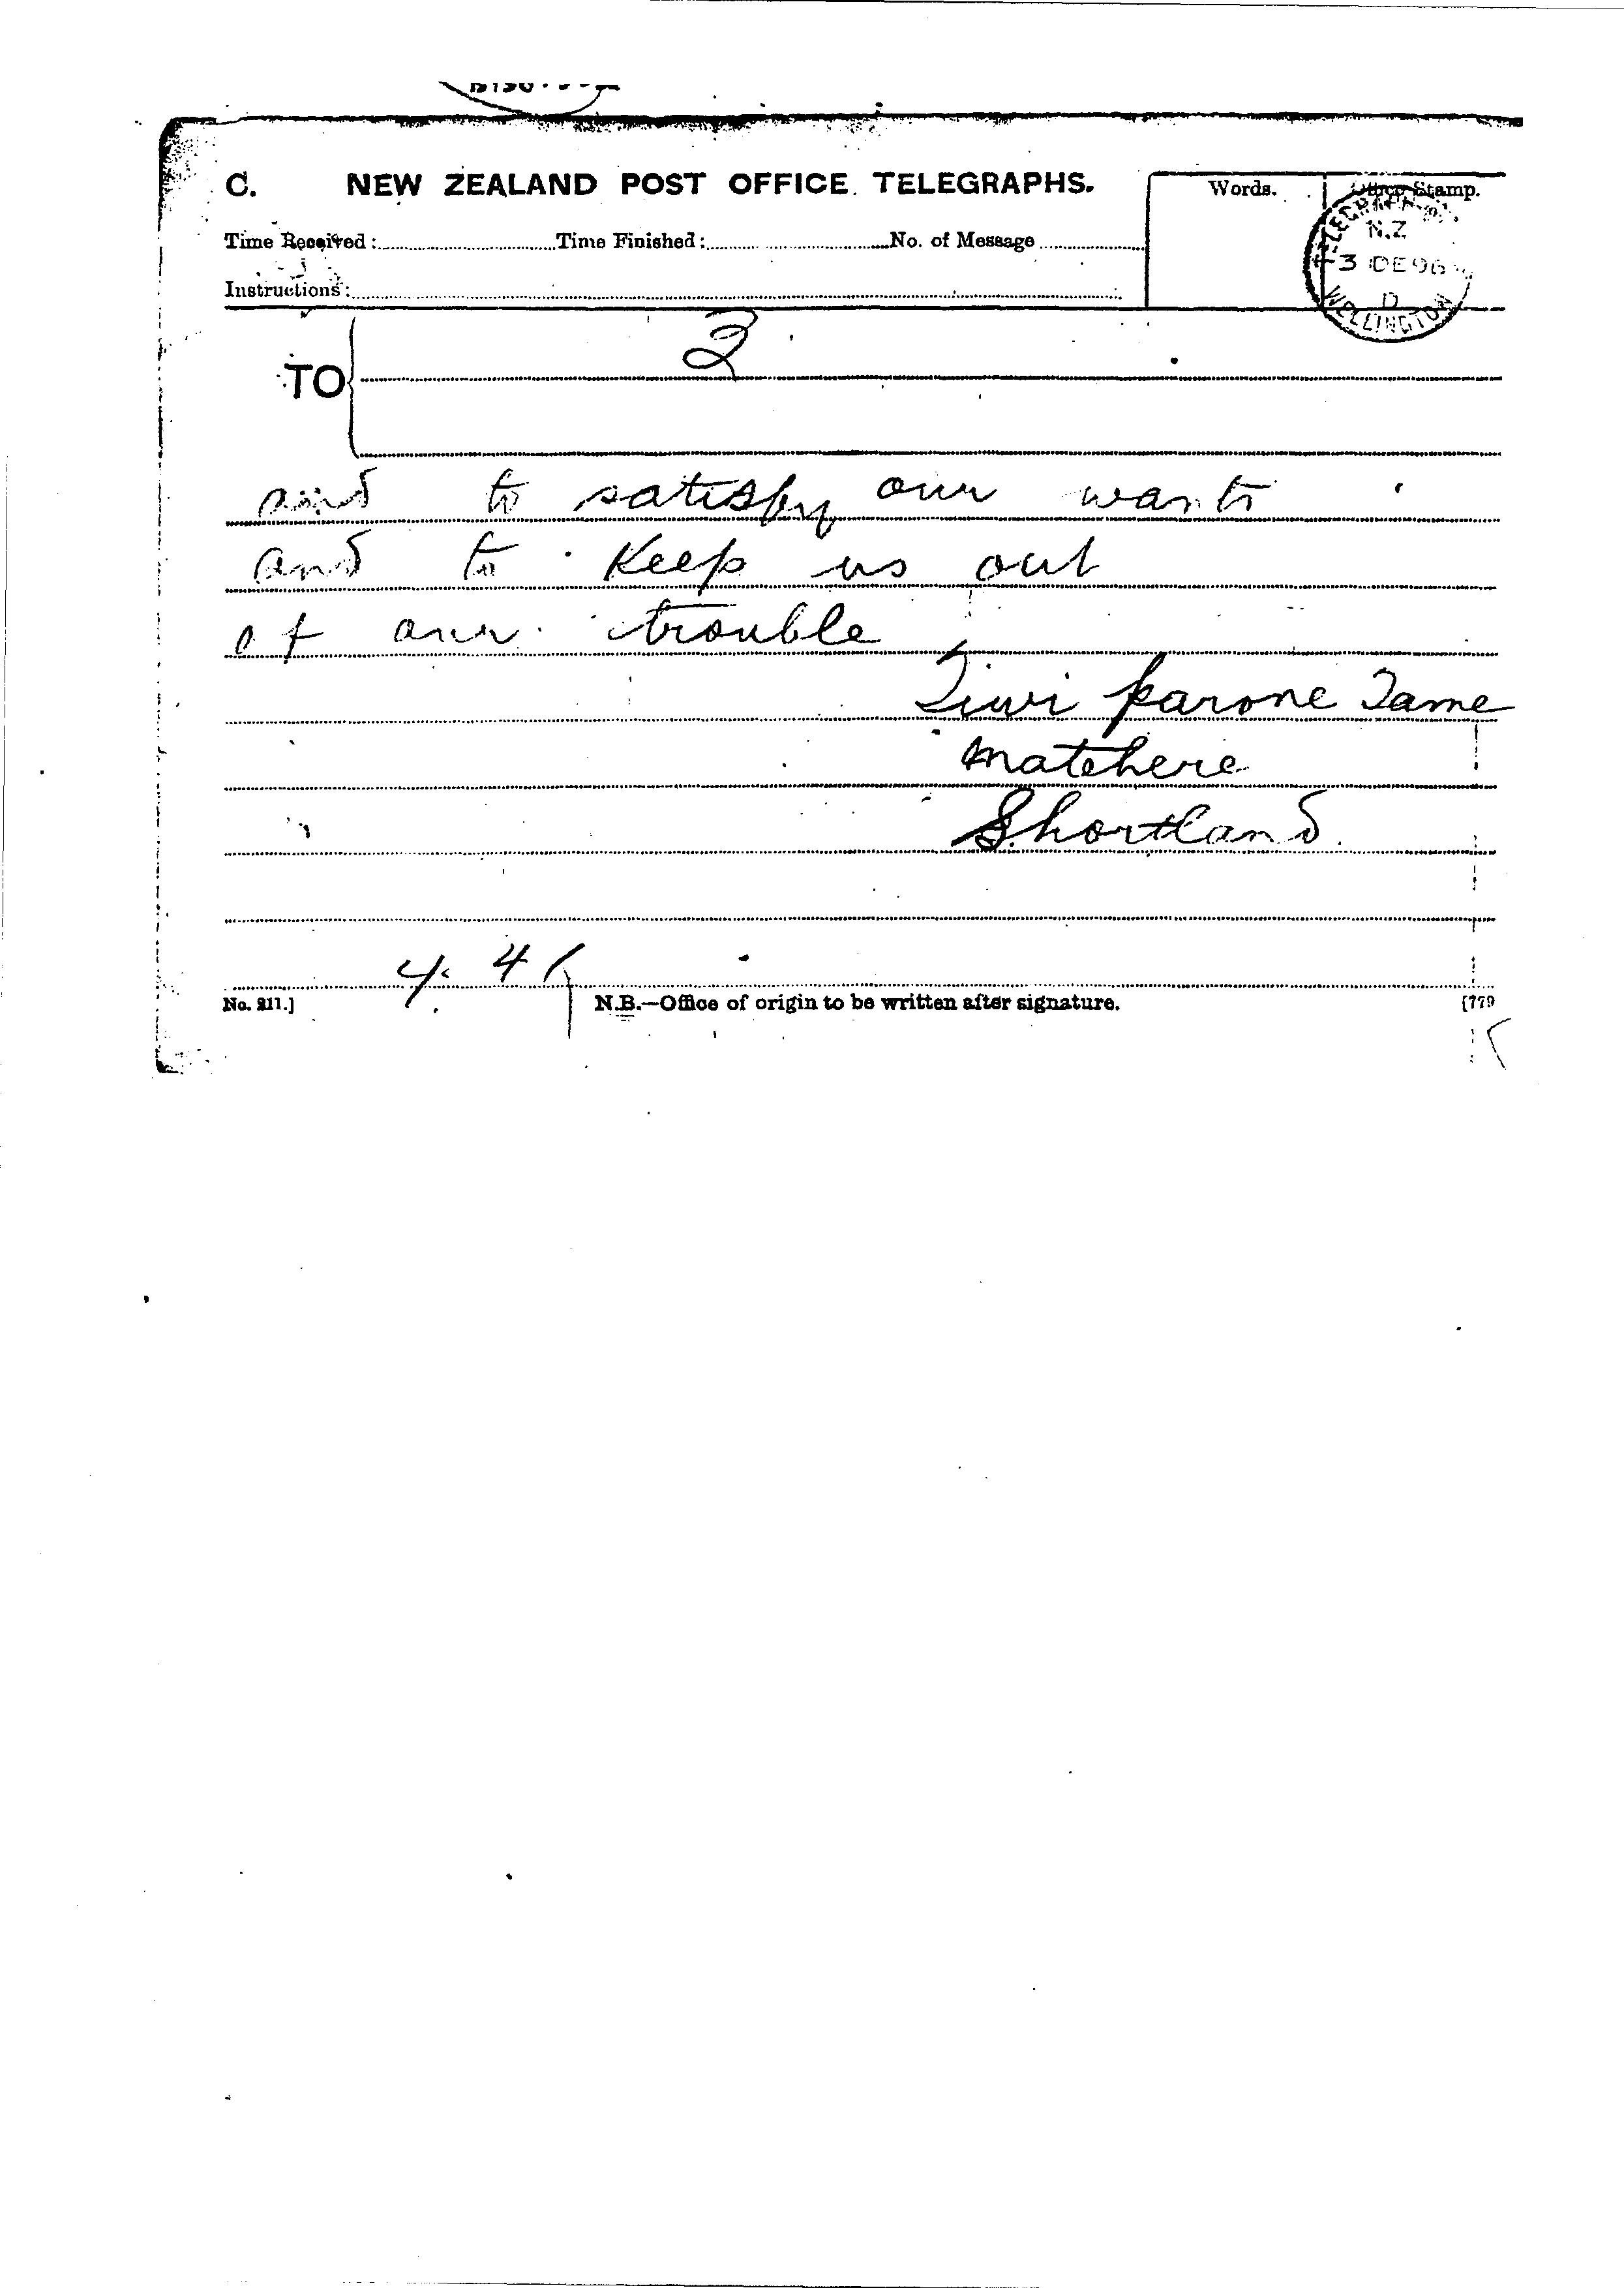 C. NEW ZEALAND POST OFFICE TELEGRAPHS.
Words. Office Stamp.
TELEGRAPH
N.Z
3 DE 96
D
WELLINGTON
Time Received: Time Finished: No. of Message
Instructions:
2
TO
and to satisfy our wants
and to Keep us out
of our trouble
Tiwi parone Tame
matehere
Shortland
4. 41
No. 211.] N.B.—Office of origin to be written after signature. [779